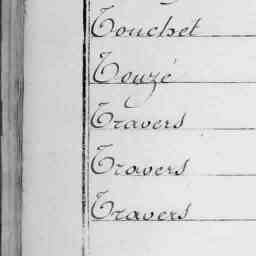 Touchet
Touzé
Travers
Travers
Travers